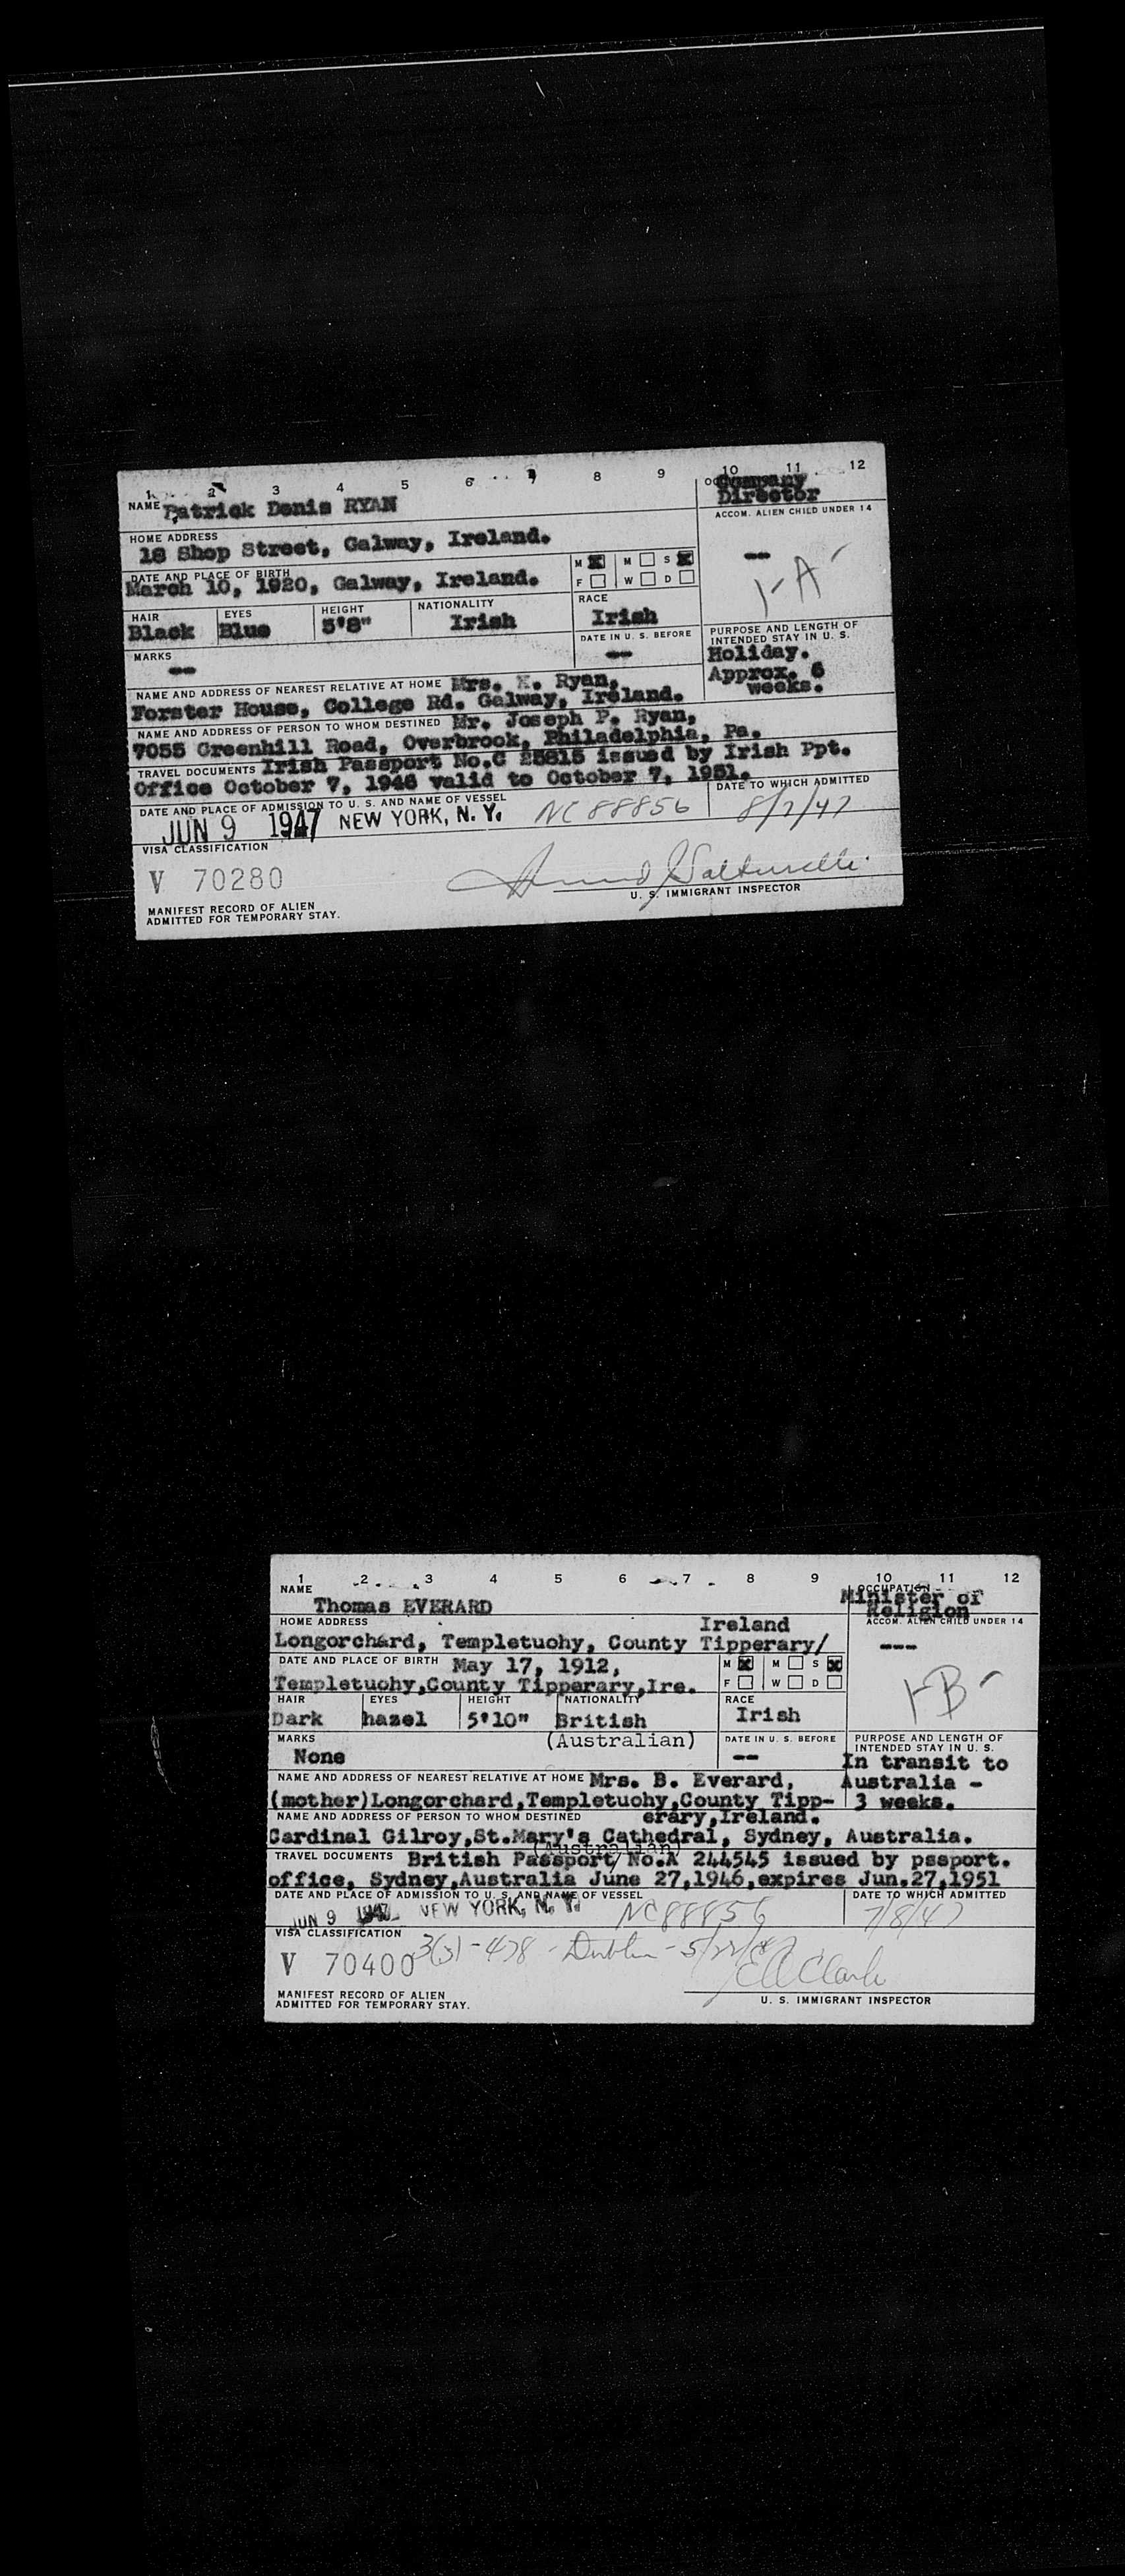 1 2 3 4 5 6 7 8 9 10 11 12
NAME Patrick Denis RYAN
OCCUPATION Company Director
HOME ADDRESS
18 Shop Street, Galway, Ireland.
ACCOM. ALIEN CHILD UNDER 14
--
DATE AND PLACE OF BIRTH
March 10, 1920, Galway, Ireland.
M X M S X
F W D
1-A-
HAIR EYES HEIGHT NATIONALITY RACE
Black Blue 5'8" Irish Irish
MARKS
--
DATE IN U. S. BEFORE
--
PURPOSE AND LENGTH OF
INTENDED STAY IN U. S.
Holiday.
Approx. 6
weeks.
NAME AND ADDRESS OF NEAREST RELATIVE AT HOME Mrs. Ryan,
Forster House, College Rd. Galway, Ireland.
NAME AND ADDRESS OF PERSON TO WHOM DESTINED Mr. Joseph P. Ryan,
7055 Greenhill Road, Overbrook, Philadelphia, Pa.
TRAVEL DOCUMENTS Irish Passport No.C 25615 issued by Irish Ppt.
Office October 7, 1946 valid to October 7, 1951.
DATE AND PLACE OF ADMISSION TO U. S. AND NAME OF VESSEL
DATE TO WHICH ADMITTED
JUN 9 1947 NEW YORK, N. Y. NC 88856 8/2/47
VISA CLASSIFICATION
V 70280
U. S. IMMIGRANT INSPECTOR
MANIFEST RECORD OF ALIEN
ADMITTED FOR TEMPORARY STAY.
1 2 3 4 5 6 7 8 9 10 11 12
NAME
Thomas EVERARD
OCCUPATION
Minister of
Religion
HOME ADDRESS Ireland
Longorchard, Templetuohy, County Tipperary/
ACCOM. ALIEN CHILD UNDER 14
---
DATE AND PLACE OF BIRTH May 17, 1912,
Templetuohy,County Tipperary,Ire.
M X M S X
F W D
1-B-
HAIR EYES HEIGHT NATIONALITY RACE
Dark hazel 5'10" British Irish
(Australian)
MARKS
None
DATE IN U. S. BEFORE
--
PURPOSE AND LENGTH OF
INTENDED STAY IN U. S.
In transit to
Australia -
3 weeks.
NAME AND ADDRESS OF NEAREST RELATIVE AT HOME Mrs. B. Everard,
(mother)Longorchard,Templetuohy,County Tipp-
NAME AND ADDRESS OF PERSON TO WHOM DESTINED erary,Ireland.
Cardinal Gilroy,St.Mary's Cathedral, Sydney, Australia.
(Australian)
TRAVEL DOCUMENTS British Passport/No.A 244545 issued by pssport.
office, Sydney,Australia June 27,1946,expires Jun.27,1951
DATE AND PLACE OF ADMISSION TO U. S. AND NAME OF VESSEL
DATE TO WHICH ADMITTED
JUN 9 1947 NEW YORK, N. Y. NC88856 7/8/47
VISA CLASSIFICATION
V 70400 3(3)-478 - Dublin -
E A Clark
U. S. IMMIGRANT INSPECTOR
MANIFEST RECORD OF ALIEN
ADMITTED FOR TEMPORARY STAY.